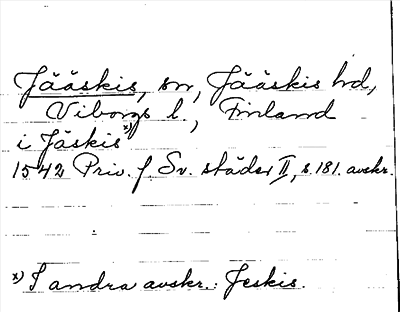 Jääskis, sn, Jääskis hd,
Viborgs l., Finland
i Jäskis x)
1542 Priv. f Sv. städer II, s. 181. avskr.
x) I andra avskr.: Jeskis.